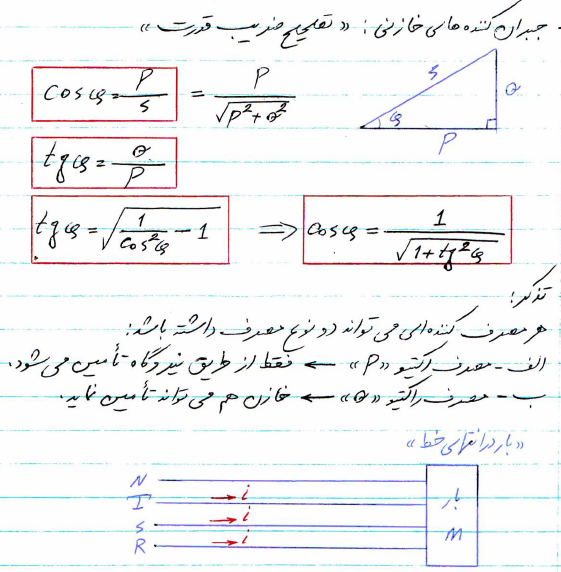 جبران کننده های خازنی: «تصحیح ضریب قدرت»
cosφ = P/S = P/√(P²+Q²)
S
Q
φ
P
tgφ = Q/P
tgφ = √(1/cos²φ − 1) ⇒ cosφ = 1/√(1+tg²φ)
تذکر:
هر مصرف کننده ای می تواند دو نوع مصرف داشته باشد:
الف - مصرف اکتیو «P» ← فقط از طریق نیروگاه تأمین می شود.
ب - مصرف راکتیو «Q» ← خازن هم می تواند تأمین نماید.
«بار در انتهای خط»
N
T → i
S → i
R → i
بار
M